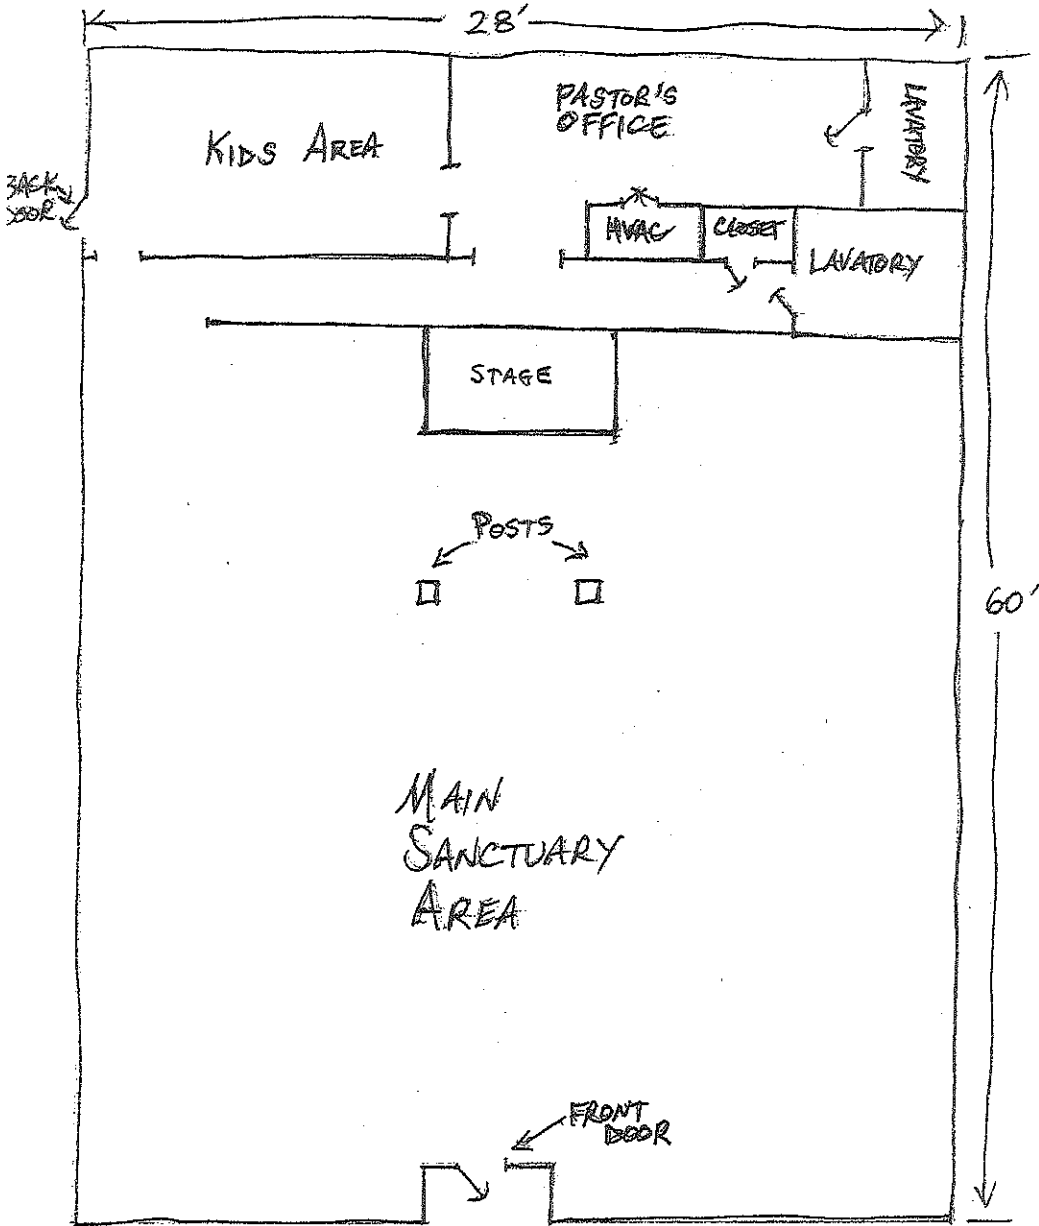 28'
KIDS AREA
PASTOR'S
OFFICE
LAVATORY
BACK
DOOR
HVAC
CLOSET
LAVATORY
STAGE
POSTS
60'
MAIN
SANCTUARY
AREA
FRONT
DOOR